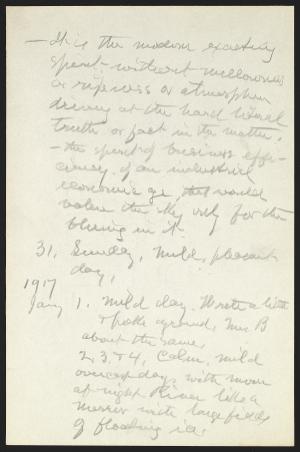 — It is the modern exacting
spirit without mellowness
or ripeness or atmosphere
driving at the hard literal
truth or fact in the matter.
— the spirit of business effi-
ciency of an industrial
economic age, that would
value the sky only for the
bluing in it.
31, Sunday, Mild, pleasant
day,
1917
Jany 1. Mild day. Wrote a little
& walk around, Mrs B
about the same.
2, 3, & 4, Calm, mild
overcast days with moon
at night River like a
mirror with large fields
of floating ice.